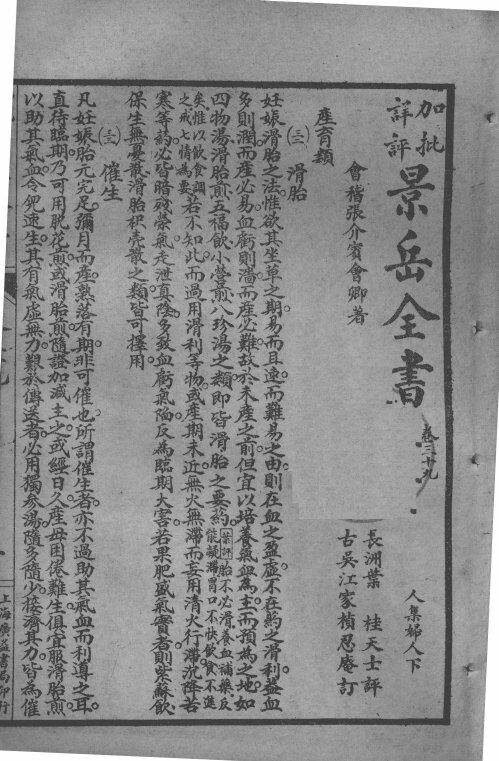 加批
詳評
景岳全書
卷三十九
人集婦人下
會稽張介賓會卿著
長洲葉 桂天士評
古吳江家楨忍庵訂
產育類
(三) 滑胎
妊娠滑胎之法惟欲其坐草之期易而且速而難易之由則在血之盈虛不在藥之滑利蓋血
多則潤而產必易血虧則濇而產必難故於未產之前但宜以培養氣血為主而預為之地如
四物湯滑胎煎五福飲小營煎八珍湯之類即皆滑胎之要藥 葉評 胎不必滑養血補藥反能凝滯胃口不快飲食不進
矣惟以飲食調之戒七情為要 若不知此而過用滑利等物或產期未近無火無滯而妄用清火行滯沉降苦
寒等藥必皆暗殘營氣走泄真陰多致血虧氣陷反為臨期大害若果肥盛氣實者則紫蘇飲
保生無憂散滑胎枳壳散之類皆可擇用
(三) 催生
凡妊娠胎元完足彌月而產熟落有期非可催也所謂催生者亦不過助其氣血而利導之耳
直待臨期乃可用脫花煎或滑胎煎隨證加減主之或經日久產母困倦難生俱宜服滑胎煎
以助其氣血令兒速生其有氣虛無力艱於傳送者必用獨參湯隨多隨少接濟其力皆為催
上海廣益書局印行